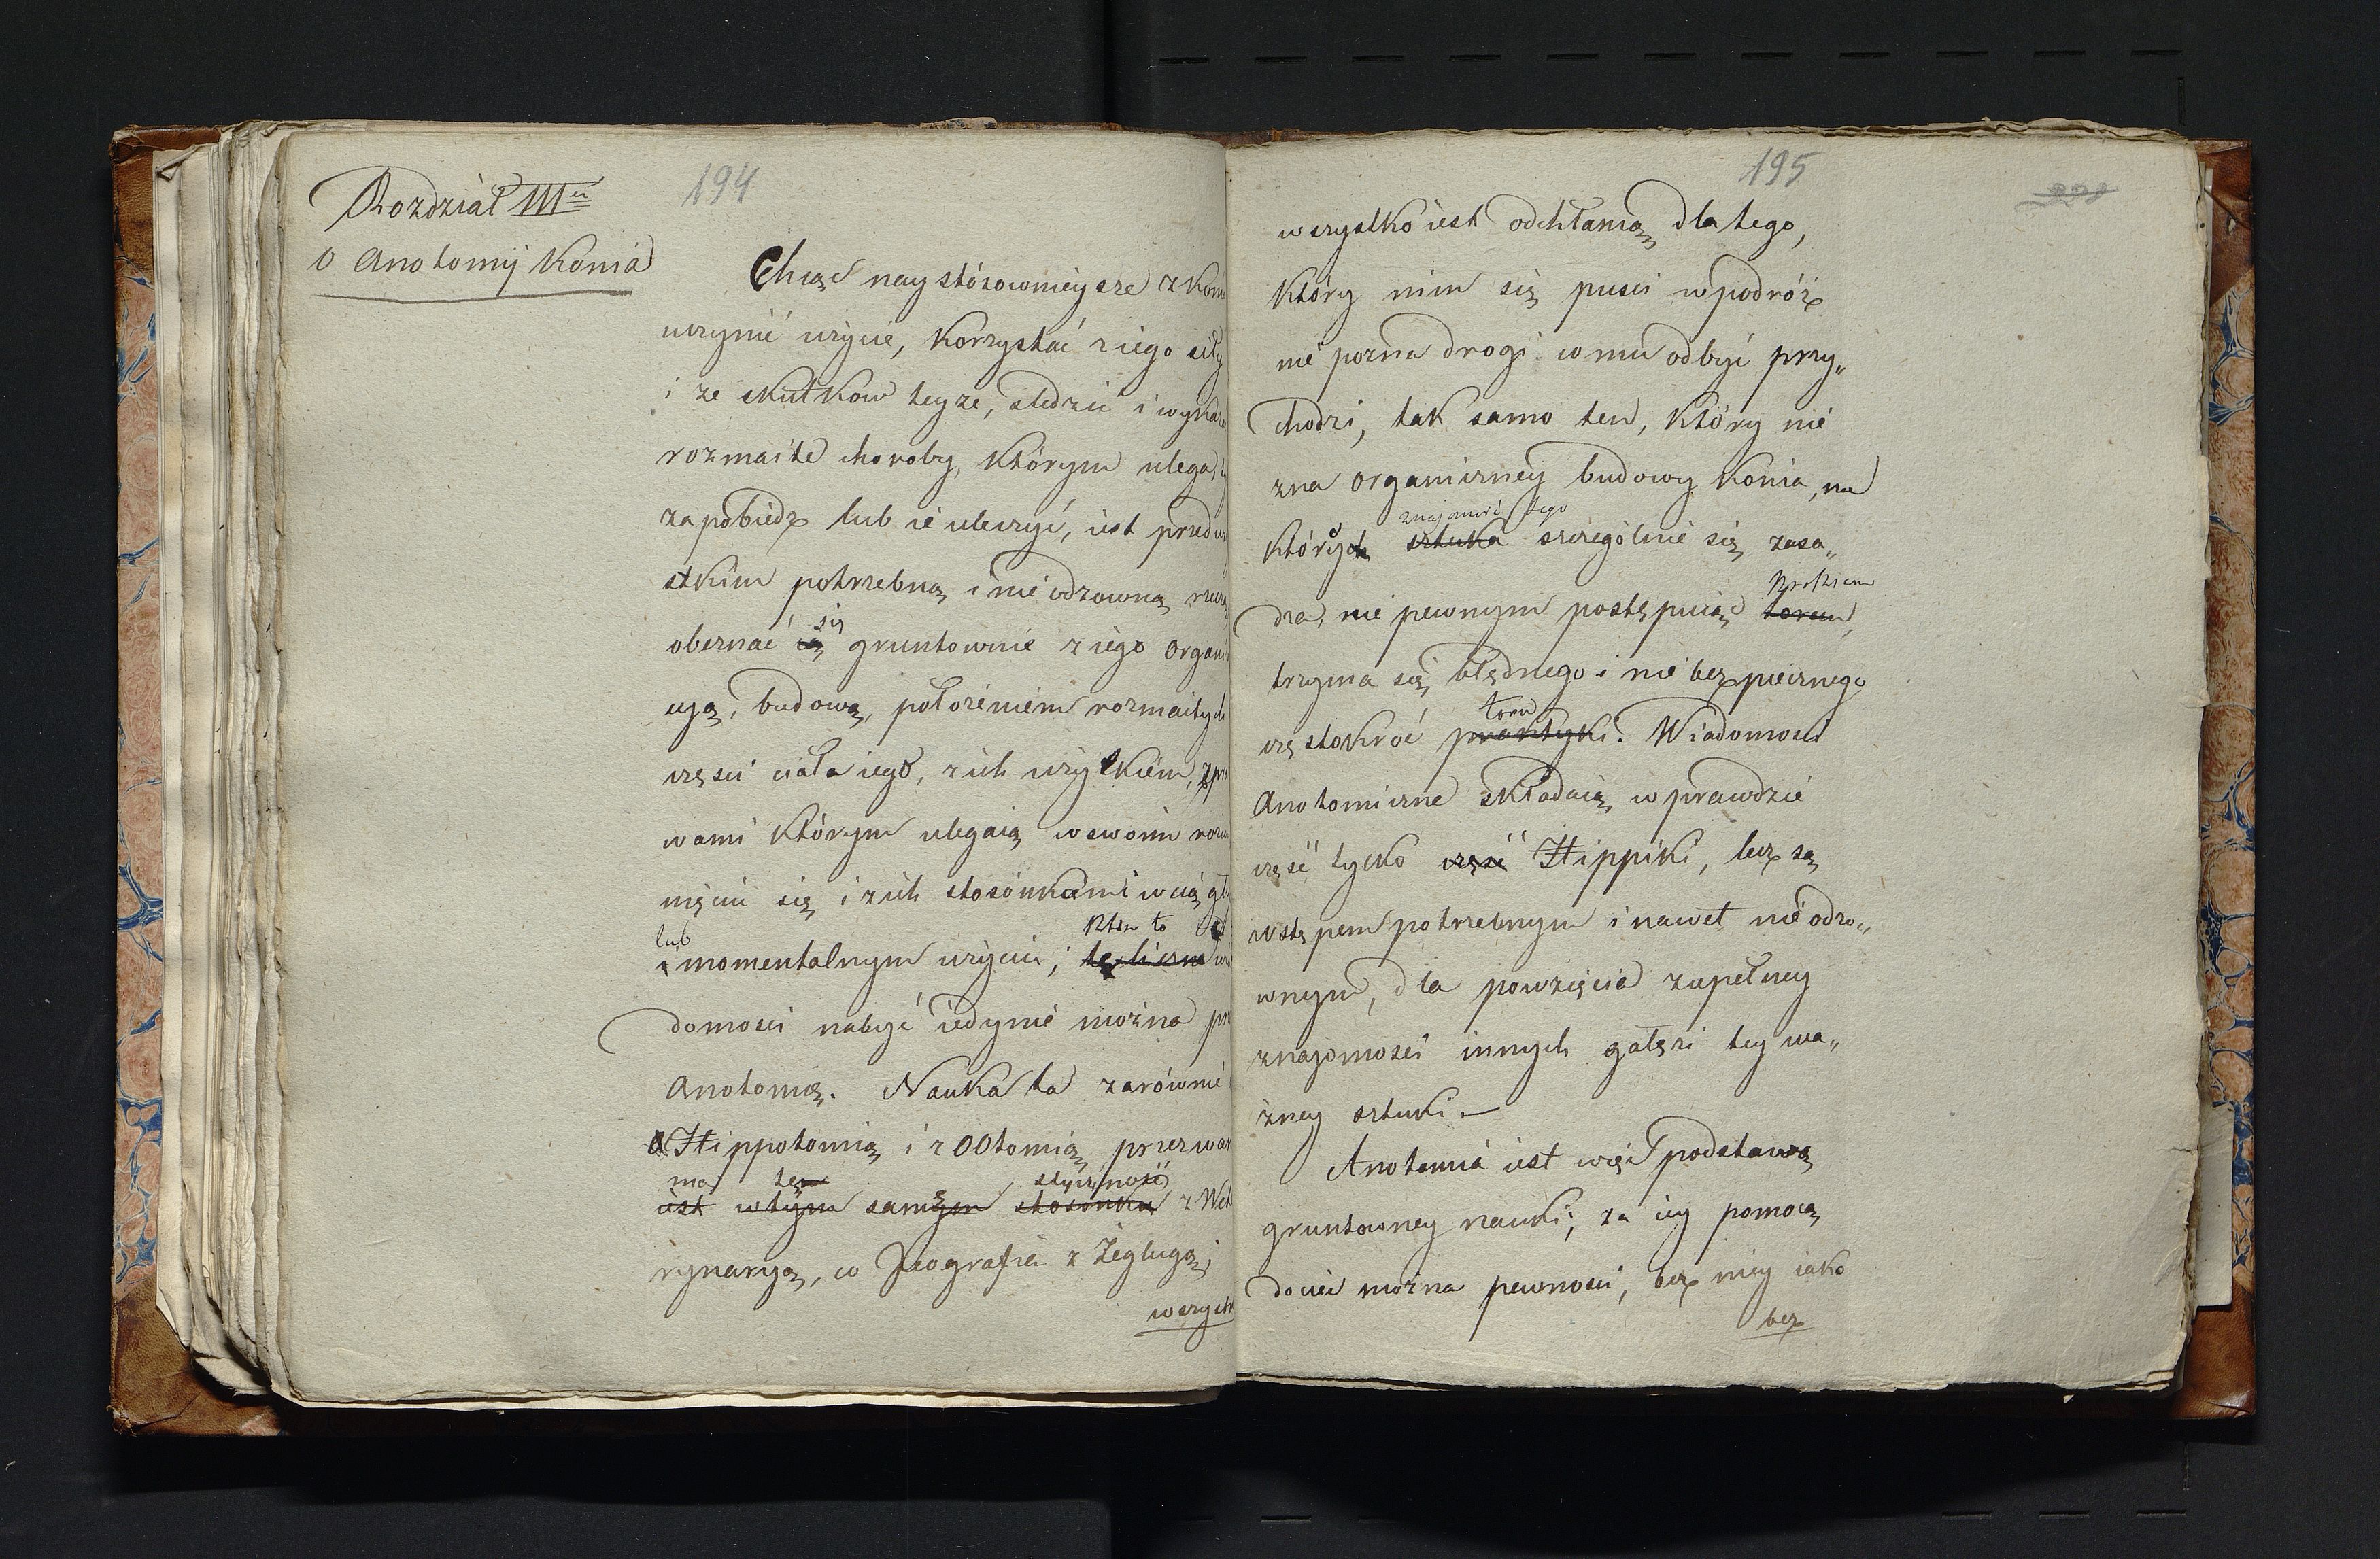 194
Rozdział III
O Anotomij Konia
Chcąc naystósowniejsze z Kon
uczynić użycie, Korzystać z iego siły
i ze skutkow teyze, sledzić i wykaz
rozmaite choroby, którym ulega,
zapobiedz lub ie uleczyć, iest przedw
stkim potrzebną i nieodzowną rzecz
obeznać ią się gruntownie z iego organi
cyą, budową, położeniem rozmaitych
części ciała iego, z ich użytkiem, z pra
wami którym ulegaią w swoim rozw
nięciu się i z ich stosónkami w ciągły
lub
i momentalnym użyciu;
domosci nabyć iedynie można prz
Anotomią. Nauka ta zarównie
Hippotomią i zOOtomią przezwan
ma tę styczność
iest w tym samym stosónku z Wet
rynaryą, co Jeografia z Żeglugą;
wszyst
195
wszystko iest odchłanią dla tego,
Który nim się pusci w podróż
nie pozna drogi co mu odbyć przy„
chodzi, tak samo ten, Który nie
zna organiczney budowy Konia, na
znajomość tego
Których sztuka szczególnie się zasa„
dza, nie pewnym postępuiąc torem,
trzyma się błędnego i nie bezpiecznego
toru
częstokroć praktyki. Wiadomosci
Anotomiczne składaią wprawdzie
część tylko część Hippiki, lecz są
wstępem potrzebnym i nawet nieodzo„
wnym, dla powzięcia zupełney
znajomości innych gałęzi tey wa„
żney sztuki. —
Anotomia iest więc podstawą
gruntowney nauki; za iey pomocą
dociec można pewnosci, bez niey iako
bez